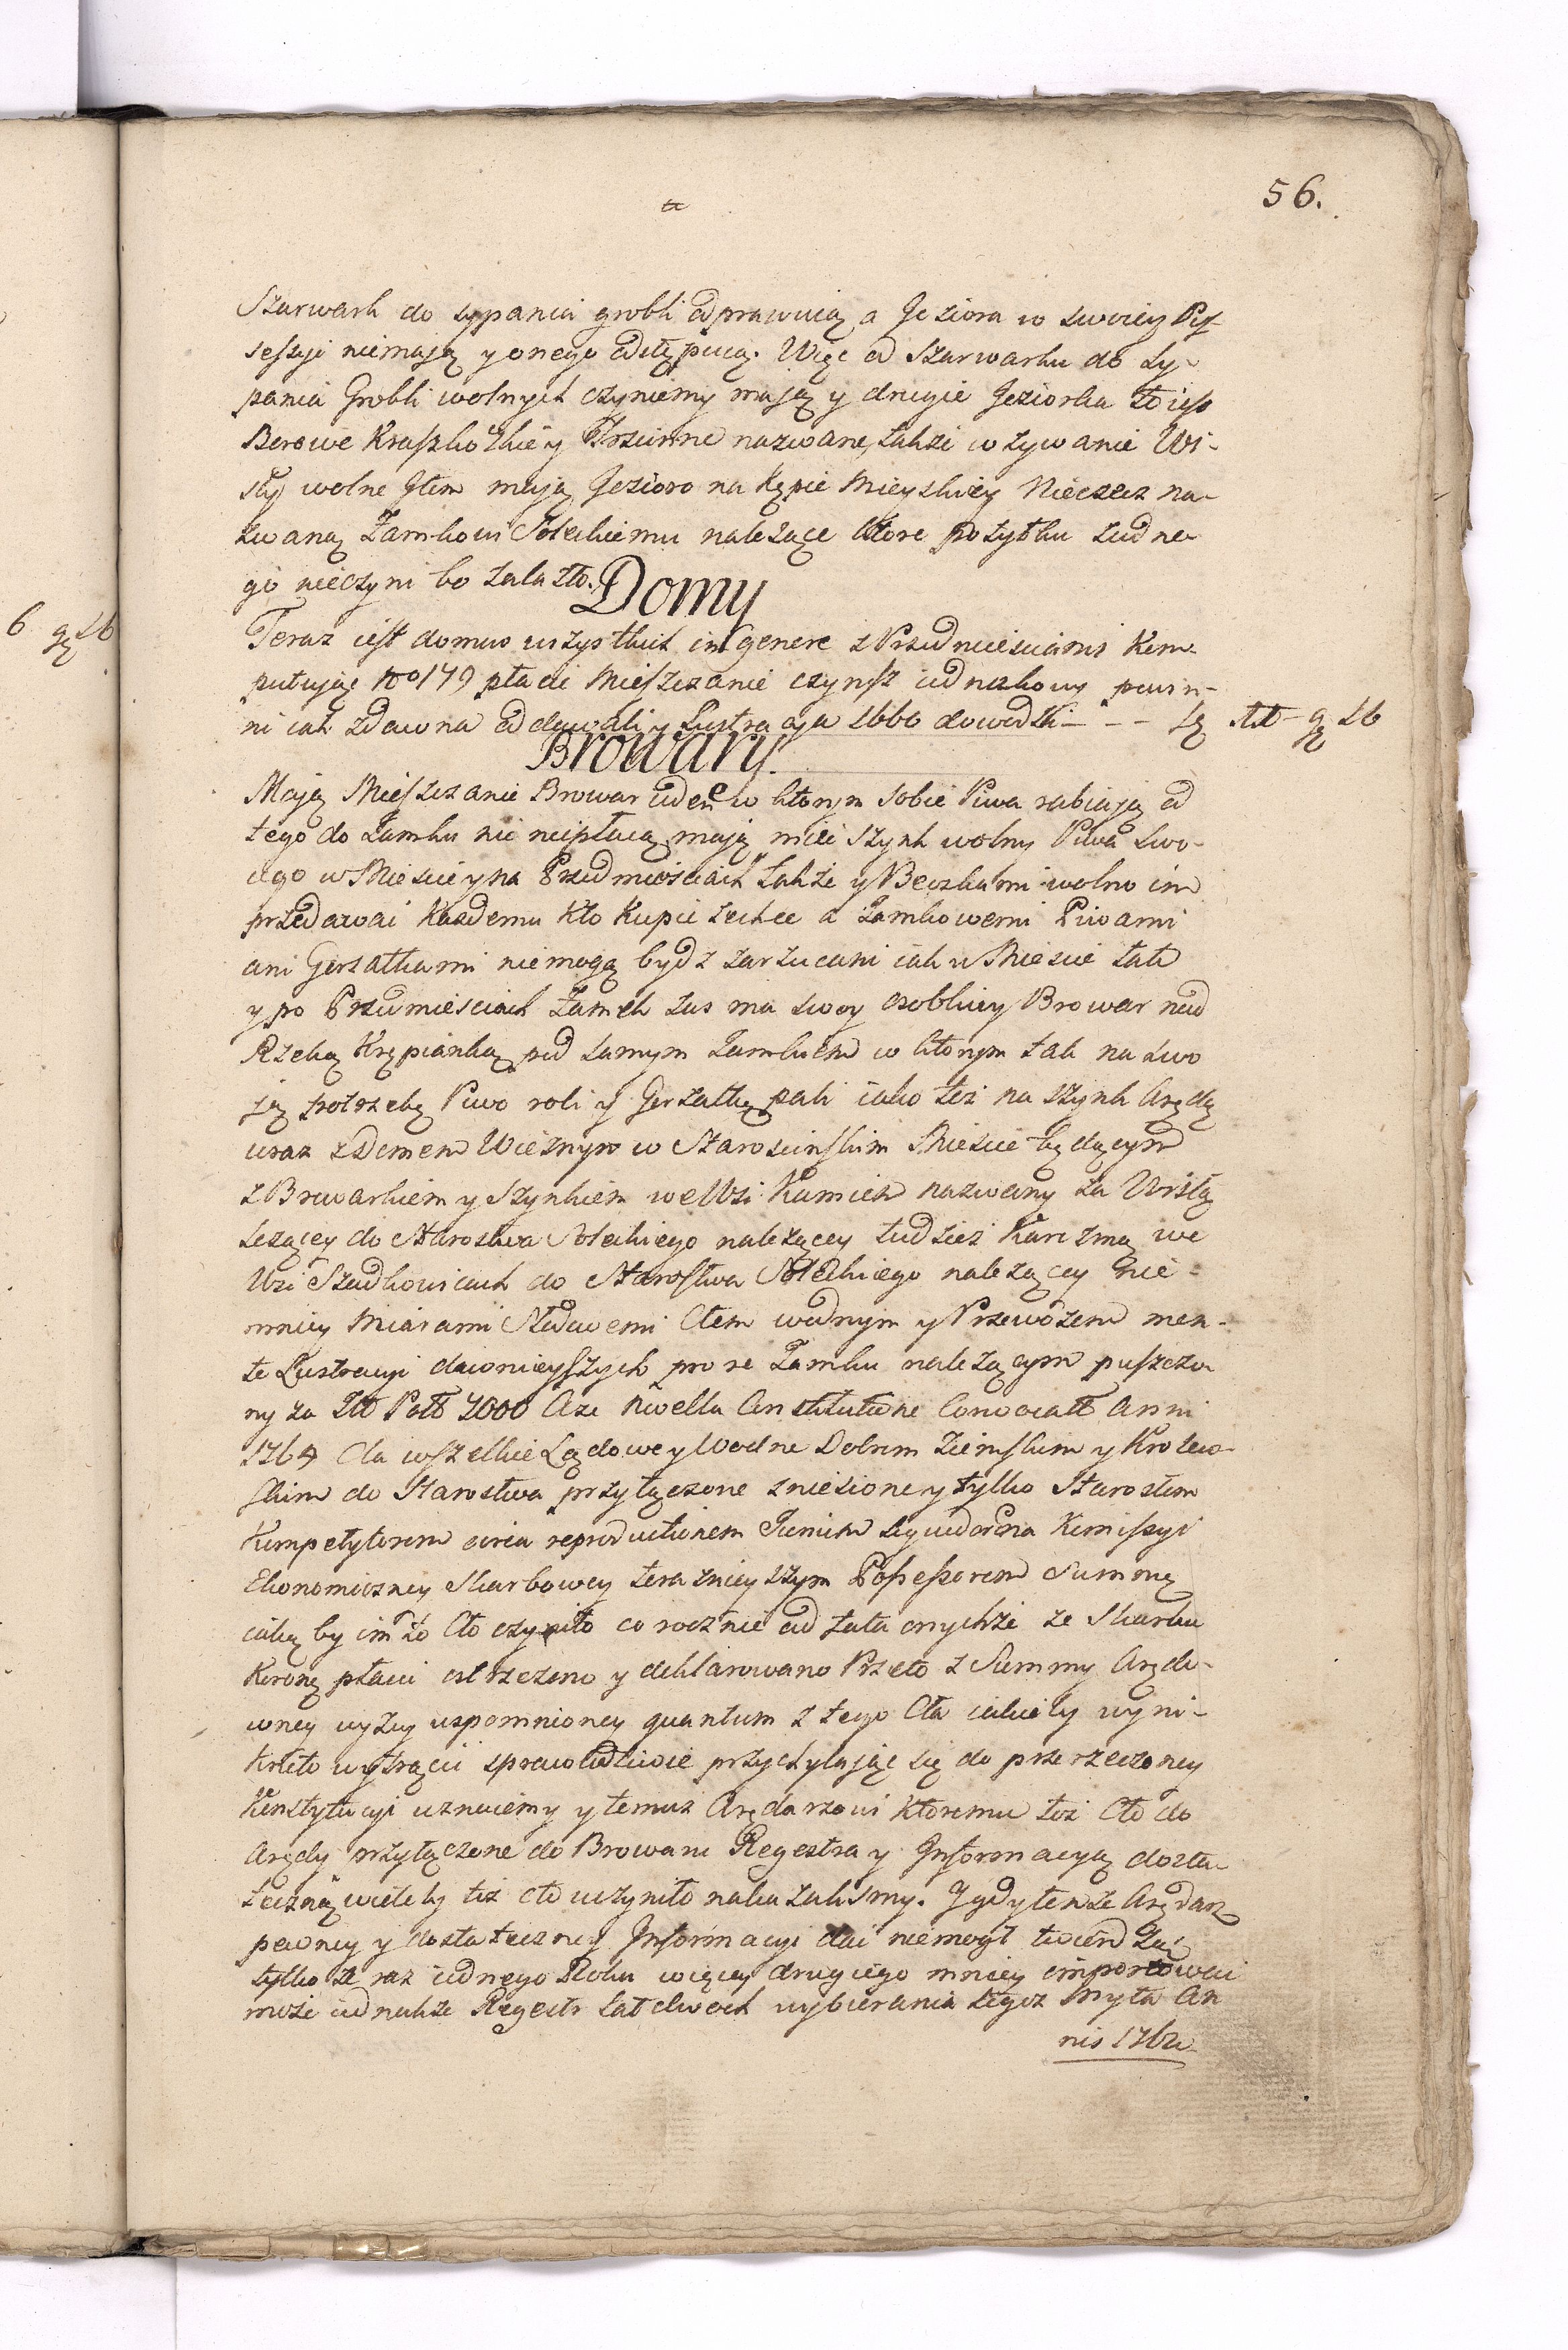 56.
Szarwark do sypania grobli odprawuią a Jeziora w swoiey Pos-
sessyi niemaią y onego odstępuią. Więc od Szarwarku do Sy-
pania Grobli wolnych czyniemy maią y drugie Jeziorka to iest
Berowe Kraszkowskie y Trzcinne nazwane, także używanie Wi-
sły wolne Item maią Jezioro na Kępie Mieyskiey Nieciecz na-
zwaną Zamkowi Soleckiemu należące ktore pożytku żadne-
go nieczyni bo zalazło.
Domy
Teraz iest domow wszystkich in genere z Przedmieściami Kom-
putuiąc No 179 płacić Mieszczanie czynsz iednakowy powin-
ni iak zdawna oddawali y Lustracya 1660 dowodzi - - -
6 gr 16
Browary
Maią Mieszczanie Browar ieden w ktorym sobie Piwa rabiaią od
tego do Zamku nic niepłacą, maią mieć szynk wolny Piwa swo-
iego w Mieście y na Przedmieściach także y Beczkami wolno im
przedawać Każdemu Kto Kupić zechce a Zamkowemi Piwami
ani Gorzałkami niemogą bydz zarzucani iak w Mieście tak
y po Przedmieściach Zamek zas ma swoy osobliwy Browar nad
Rzeką Krępianką pod samym Zamkiem w ktorym tak na swo
ią potrzebę Piwo robi y Gorzałkę pali iako też na szynk Arędą
wraz z Domem Wieznym w Starościńskim Mieście będącym
z Browarkiem y Szynkiem we Wsi Kamień nazwany za Wisłą
leżącey do Starostwa Soleckiego należącey tudzież Karczmą we
Wsi Szadkowicach do Starostwa Soleckiego należącey nie-
mniey Miarami Słodowemi Cłem wodnym y Przewozem men-
te Lustracyi dawnieyszych pro re Zamku należącym puszczo
ny za Złt Pol 7000 Aże Novella Constitutione Convocat Anni
1764 Cła wszelkie Lądowe y Wodne Dobrom Ziemskim y Krolew-
skim do Starostwa przyłączone zniesione y tylko Starostom
Kompetytorom circa reproductionem Jurium
Ekonomiczney Skarbowey teraznieyszym Possessorom Summę
iakąby im to Cło czyniło corocznie od Lata onychże ze Skarbu
Koronę płacić ostrzeżono y deklarowano Przeto z Summy Arędo-
wney wyżey wspomnioney quantum z tego Cła iakieby wyni-
knęło wytrącić sprawiedliwie przychylaiąc się do przerzeczoney
Konstytucyi uznaiemy y temuz Arędarzowi Ktoremu toż Cło do
Arędy przyłączone do Browaru Regestra y Informacyą dosta-
teczną wieleby też cło uczyniło nakazalismy. Y gdy tenże Arędarz
pewney y dostateczney Informacyi dać niemogł twierdząc
tylko że raz iednego Roku więcey drugiego mniey importować
może iednakże Regestr Lat dwoch wybierania tegoz Myta An
nis 1762
gr 16